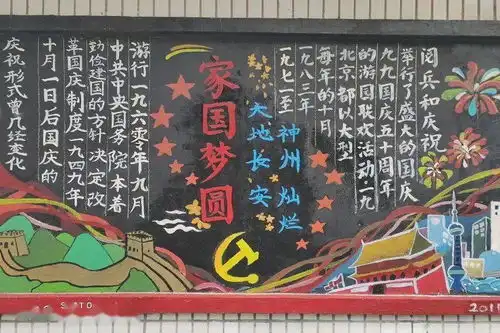 阅兵和庆祝
举行了盛大的国庆
九九国庆五十周年
的游国联欢活动·一九
北京都以大型
每年的十月
一九八三年
一九七一至
神州灿烂
大地长安
家国梦圆
游行一九六零年九月
中共中央国务院本着
勤俭建国的方针决定改
革国庆制度一九四九年
十月一日后国庆的
庆祝形式曾几经变化